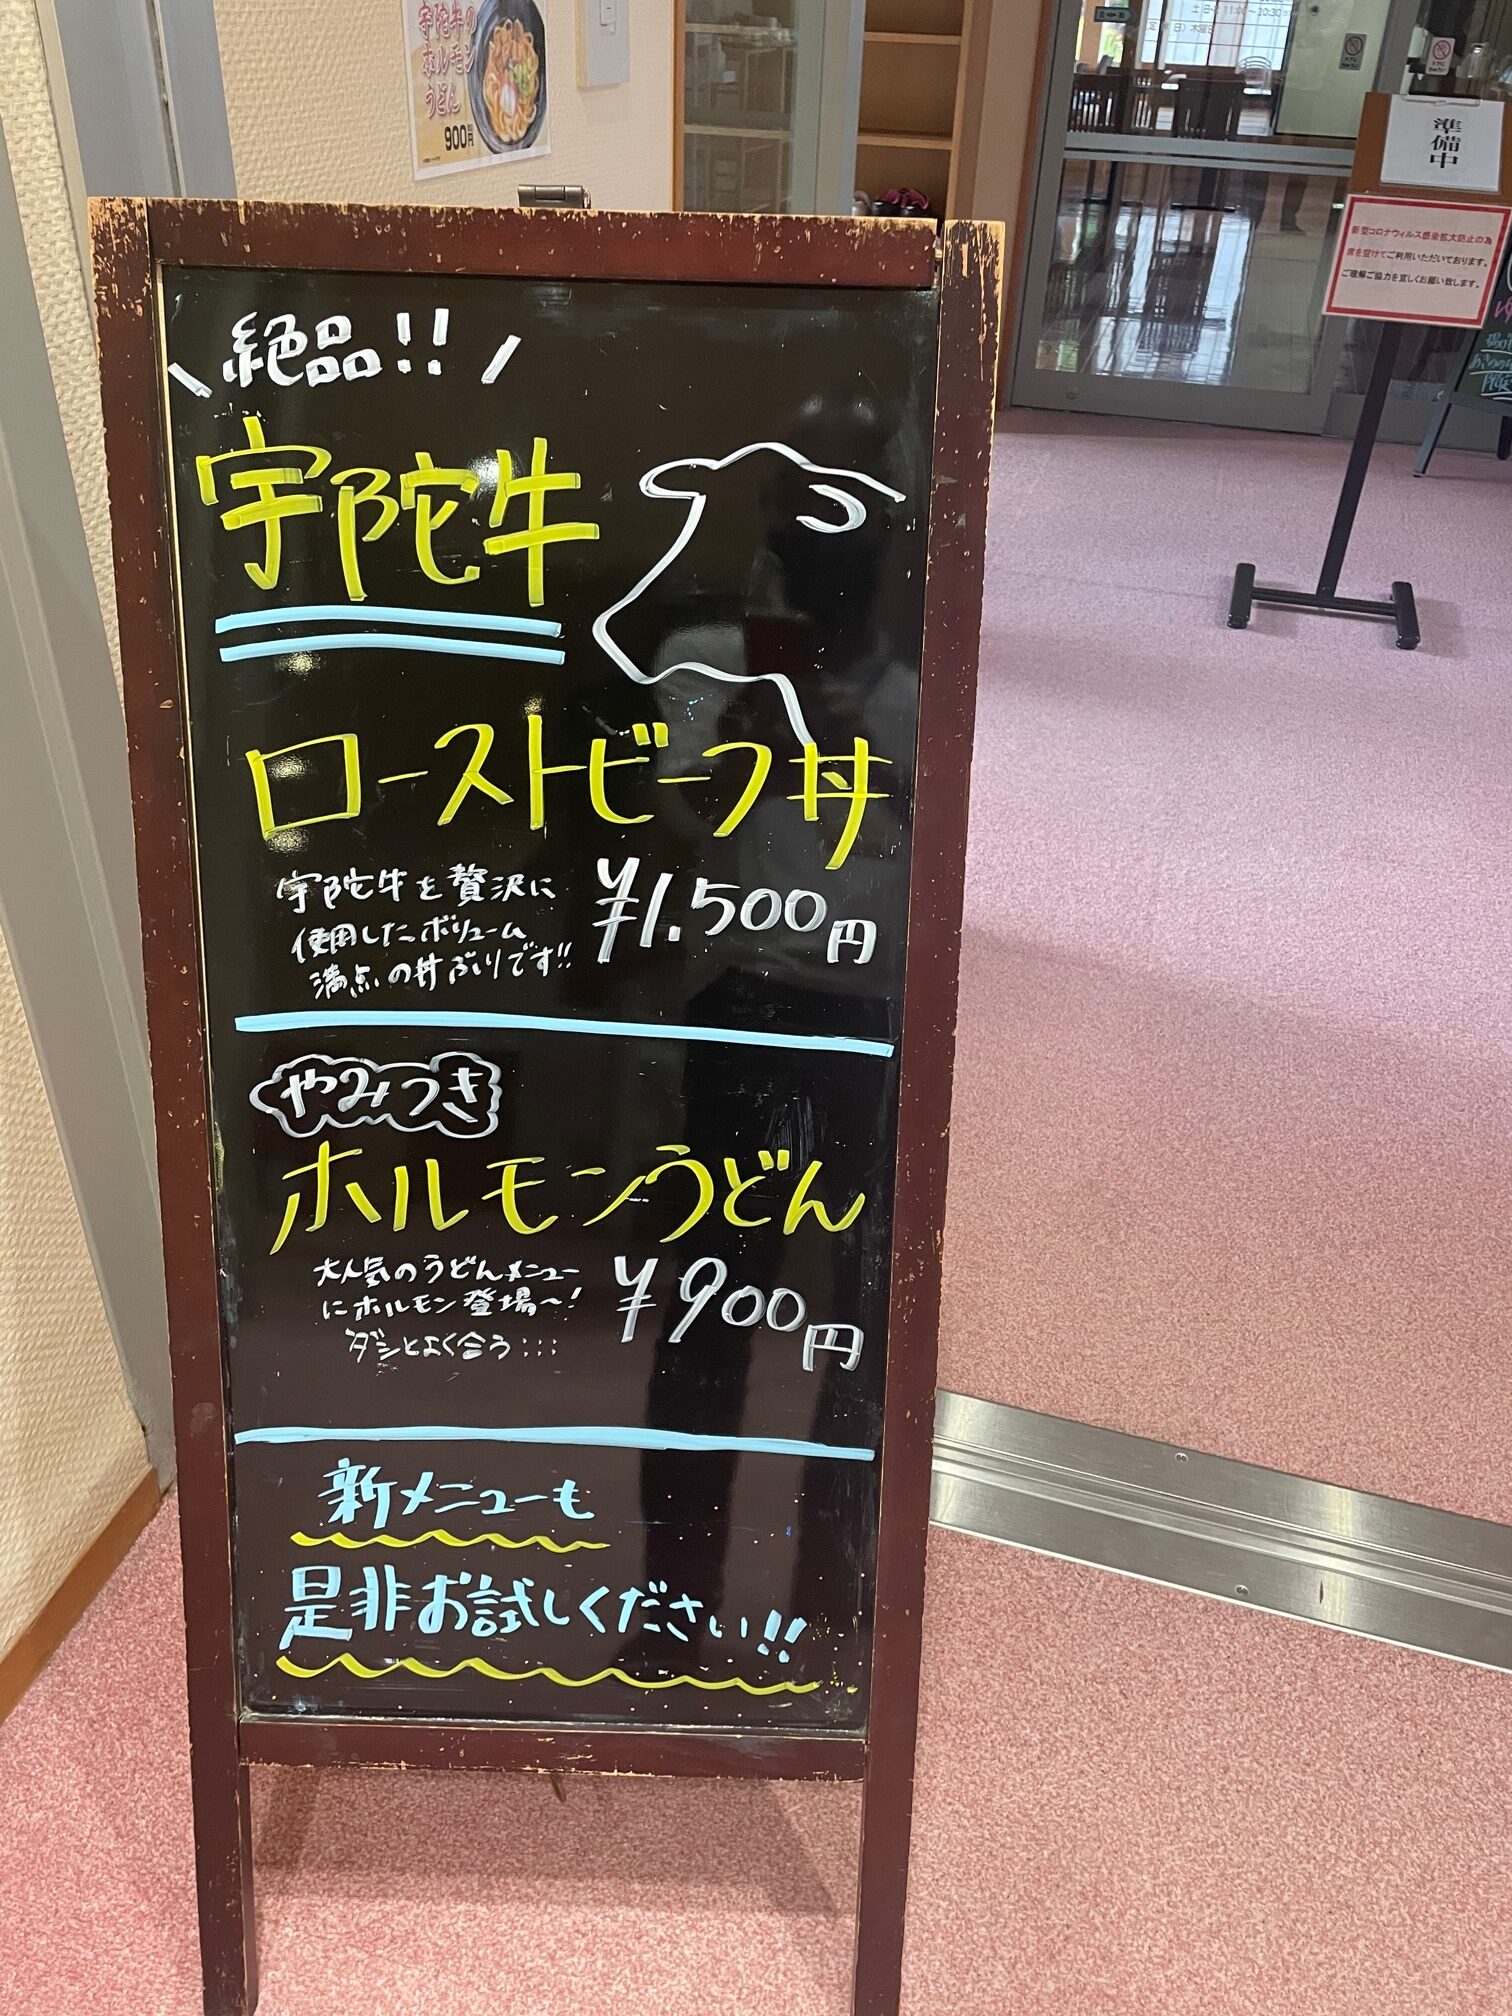 宇陀牛の
ホルモン
うどん
900円
準備中
新型コロナウィルス感染拡大防止の為
席を空けてご利用いただいております。
ご理解ご協力を宜しくお願い致します。
絶品!!
宇陀牛
ローストビーフ丼
宇陀牛を贅沢に
使用したボリューム
満点の丼ぶりです!!
¥1.500円
やみつき
ホルモンうどん
大人気のうどんメニュー
にホルモン登場〜!
ダシとよく合う:::
¥900円
新メニューも
是非お試しください!!